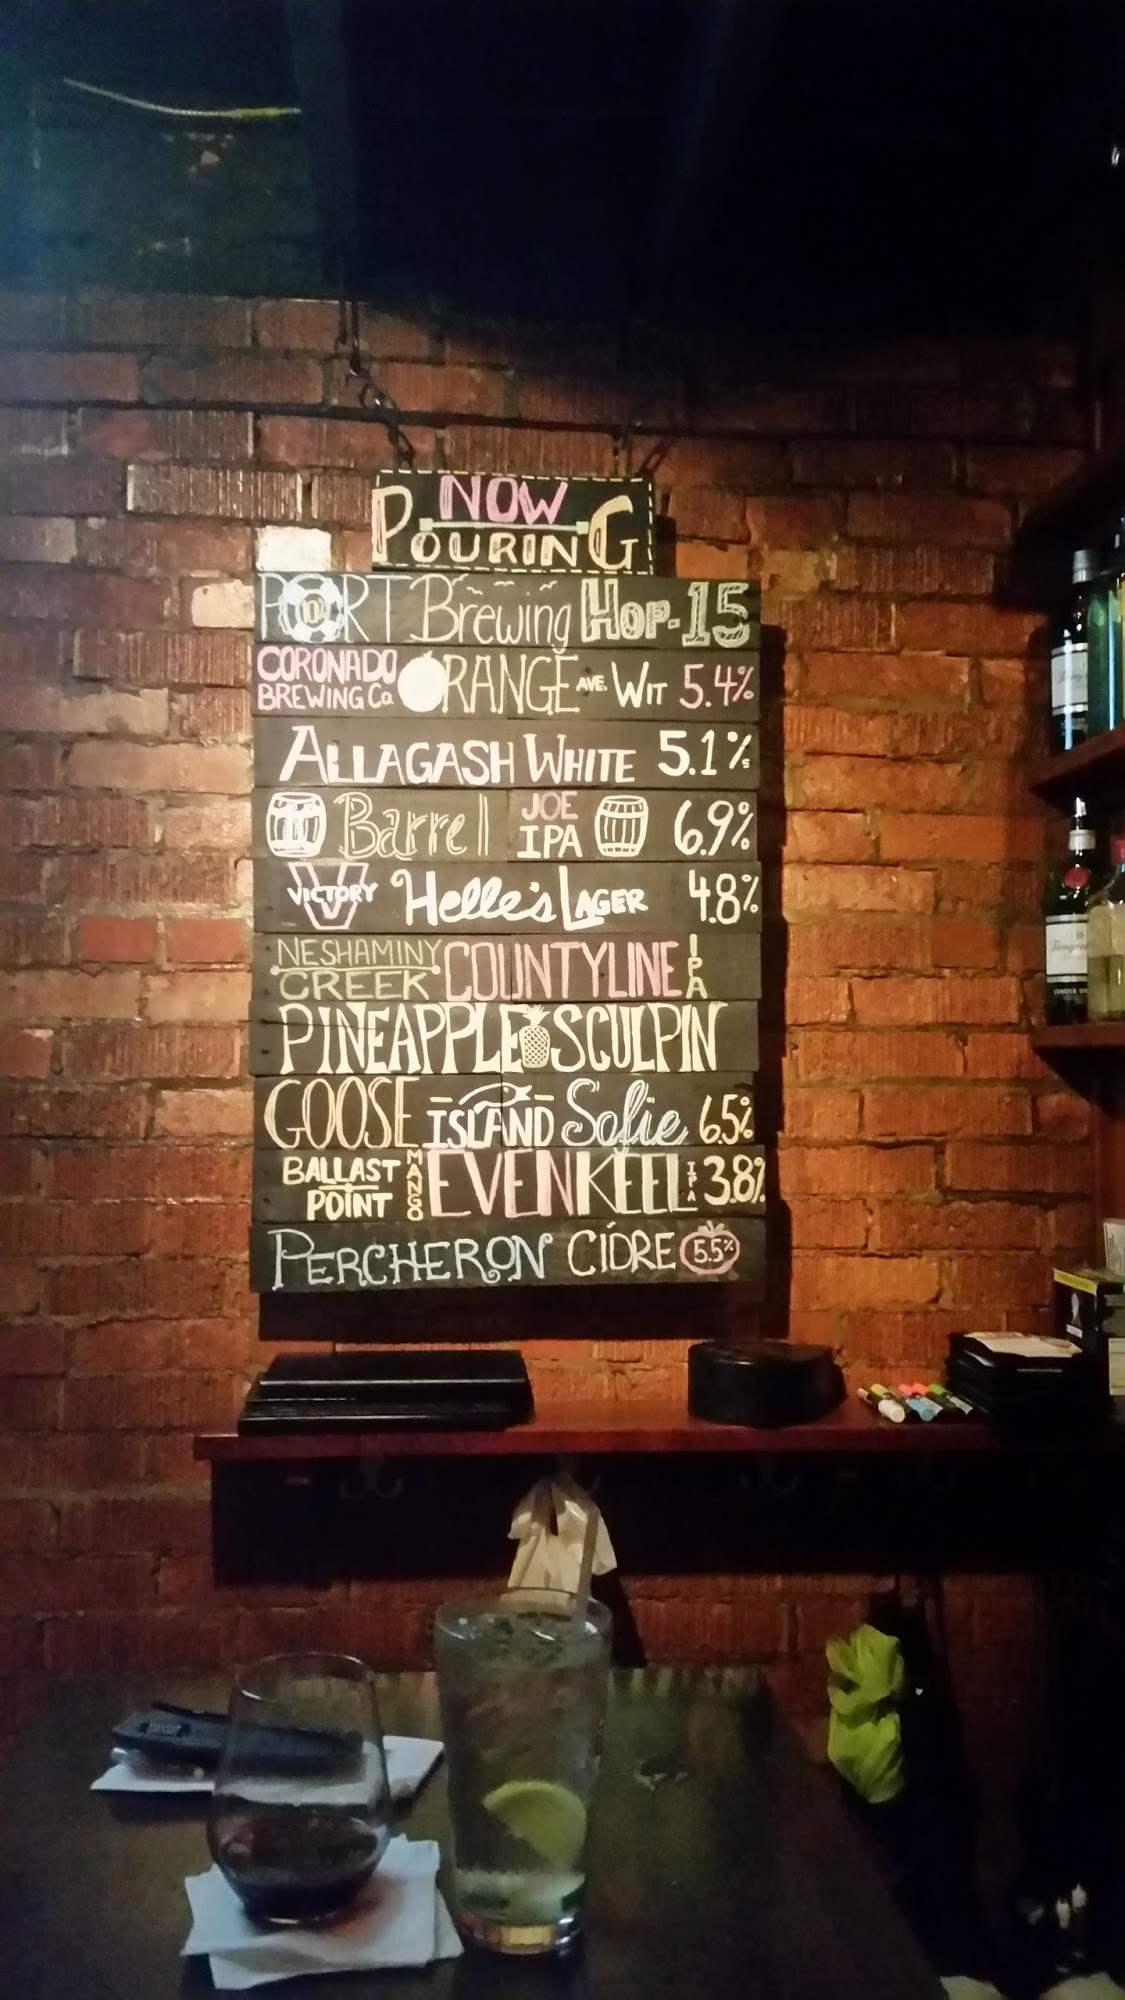 NOW
POURING
PORT Brewing HOP-15
CORONADO BREWING Co ORANGE AVE. WIT 5.4%
ALLAGASH WHITE 5.1%
Barrel JOE IPA 6.9%
VICTORY Helle's LAGER 4.8%
NESHAMINY CREEK COUNTYLINE IPA
PINEAPPLE SCULPIN
GOOSE ISLAND Sofie 6.5%
BALLAST POINT MANGO EVEN KEEL IPA 3.8%
PERCHERON CIDRE 5.5%